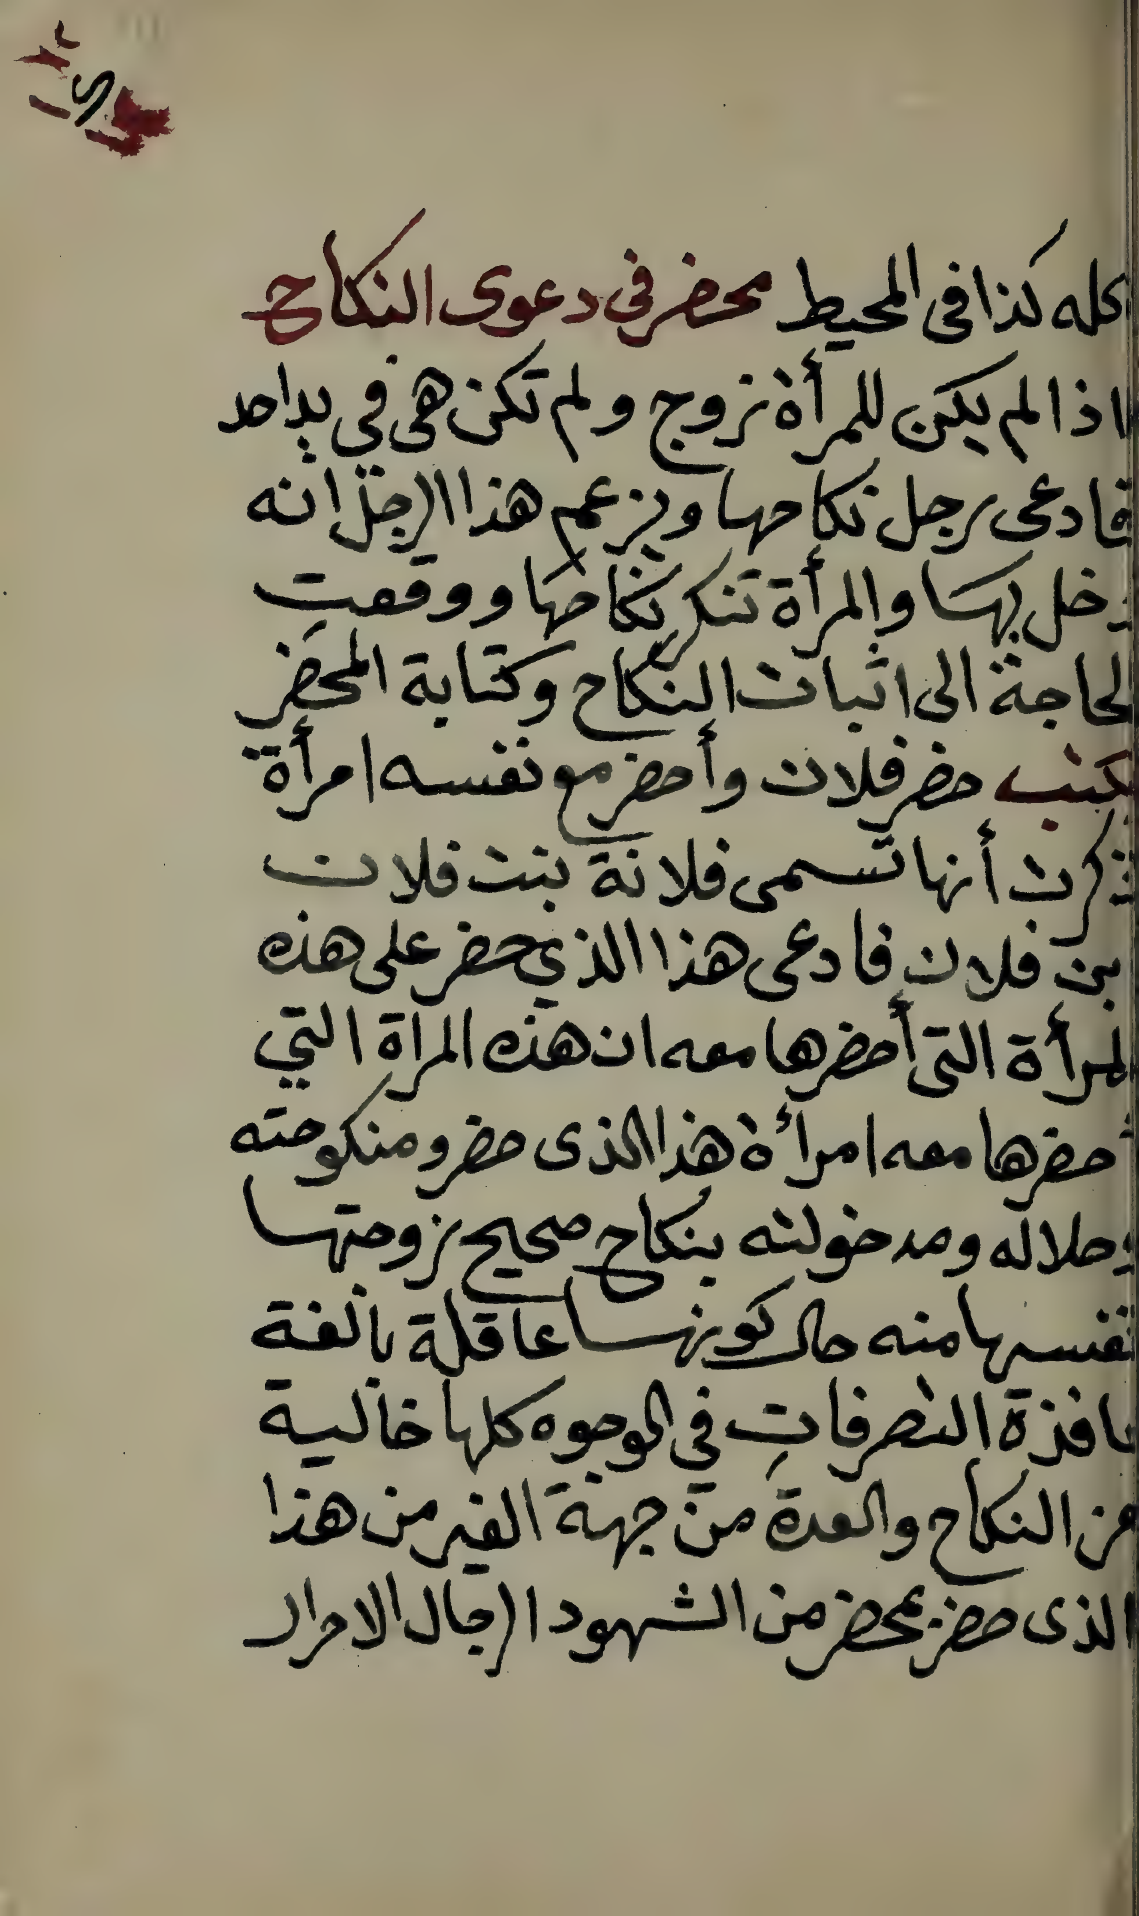 كله كذا فى المحيط محضر فى دعوى النكاح
اذا لم يكن للمرأة زوج ولم تكن هى في يد احد
فادعى رجل نكاحها ويزعم هذا الرجل انه
دخل بها والمرأة تنكر نكاحها ووقعت
لحاجة الى اثبات النكاح وكتابة المحضر
يكتب حضر فلان وأحضر مع نفسه امرأة
ذكرت أنها تسمى فلانة بنت فلان
بن فلان فادعى هذا الذي حضر على هذه
لمرأة التى أحضرها معه ان هذه المراة التي
أحضرها معه امرأة هذا الذى حضر ومنكوحته
وحلاله ومدخولته بنكاح صحيح زوجتها
نفسها منه حال كونها عاقلة بالغة
نافذة التصرفات في الوجوه كلها خالية
عن النكاح والعدة من جهة الغير من هذا
الذى حضر بمحضر من الشهود الرجال الاحرار